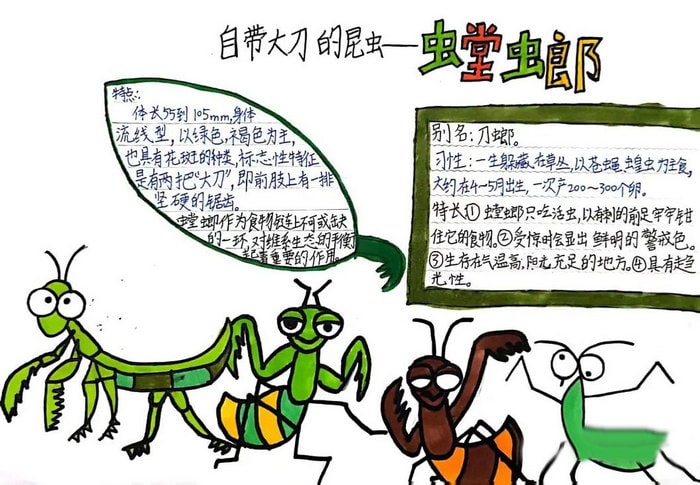 自带大刀的昆虫——螳螂
特点:
体长55到105mm,身体
流线型,以绿色,褐色为主,
也具有花斑的种类,标志性特征
是有两把"大刀",即前肢上有一排
坚硬的锯齿。
螳螂作为食物链上不可或缺
的一环,对维系生态的平衡
起着重要的作用。
别名:刀螂。
习性:一生躲藏在草丛,以苍蝇,蝗虫为主食,
大约在4~5月出生,一次产200~300个卵。
特长①螳螂只吃活虫,以有刺的前足牢牢钳
住它的食物。②受惊时会显出鲜明的警戒色。
③生存在气温高,阳光充足的地方。④具有趋
光性。